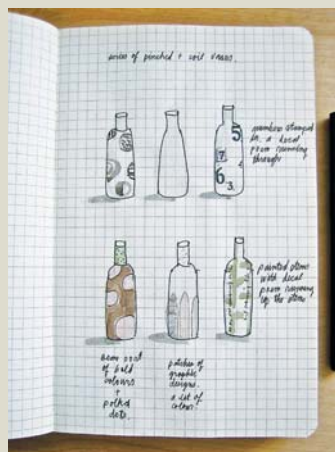 series of pinched + coil vases.
5
7
6
3.
numbers stamped
in, a decal
poem running
through
painted stems
with decal
poem running
up the stem
some sort
of bold
colours
+
polka
dots.
patches of
graphic
designs.
a lot of
colour.